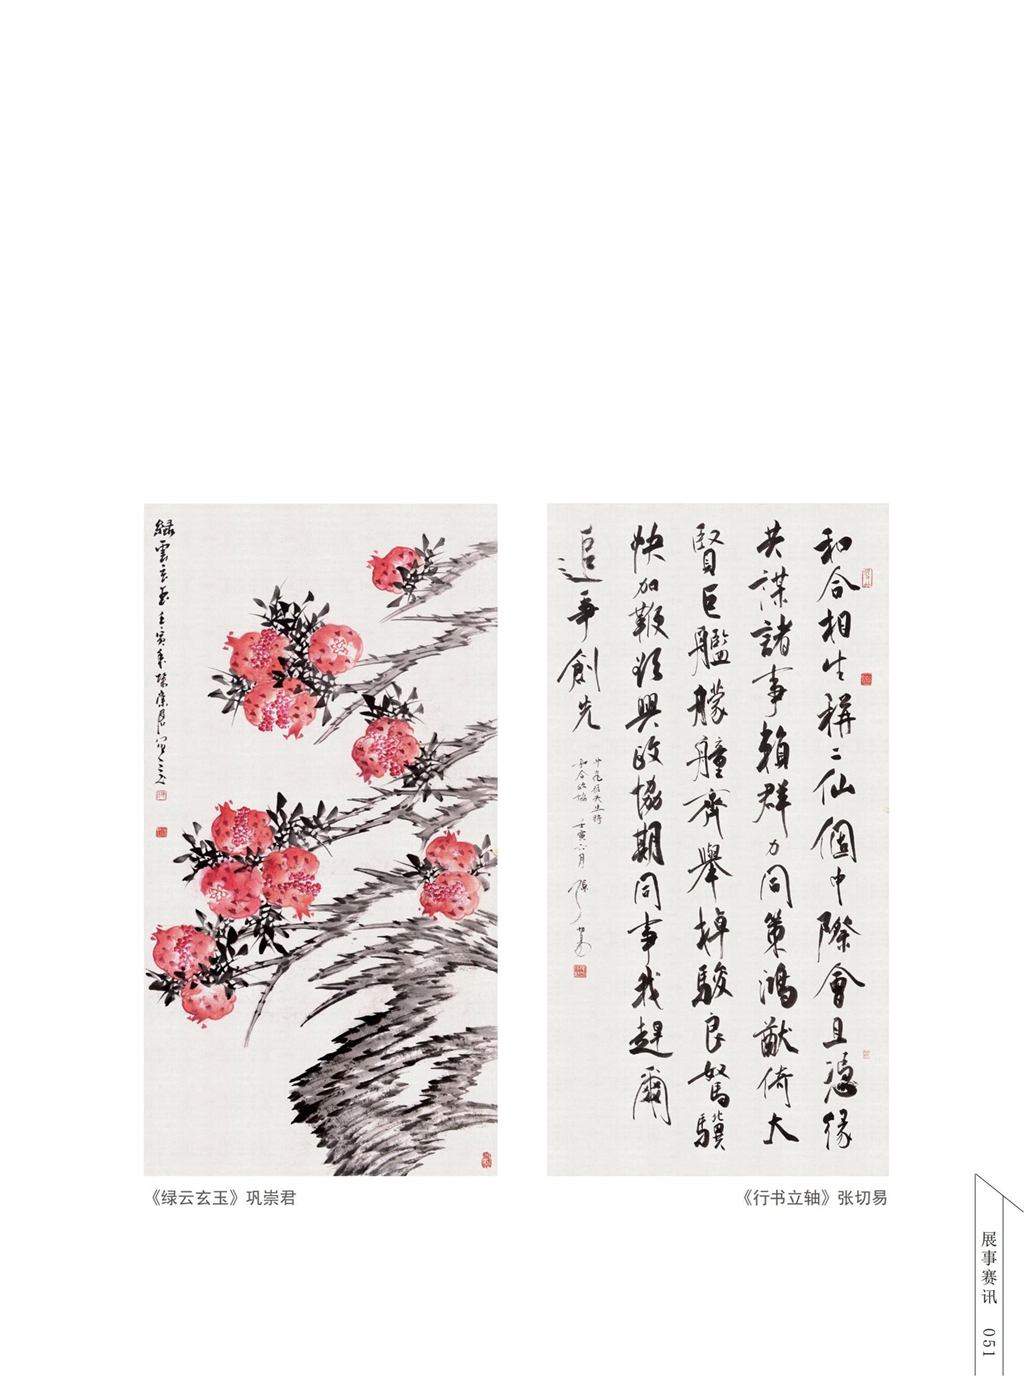 綠雲玄玉 壬寅年
和合相生稱二仙個中際會且憑緣
共謀諸事賴群力同策鴻猷倚大
賢巨艦艨艟齊舉棹駿良駑驥
快加鞭欣興政協期同事我趕爾
追爭創先
和合政協 壬寅六月
《绿云玄玉》巩崇君
《行书立轴》张切易
展事赛讯 051